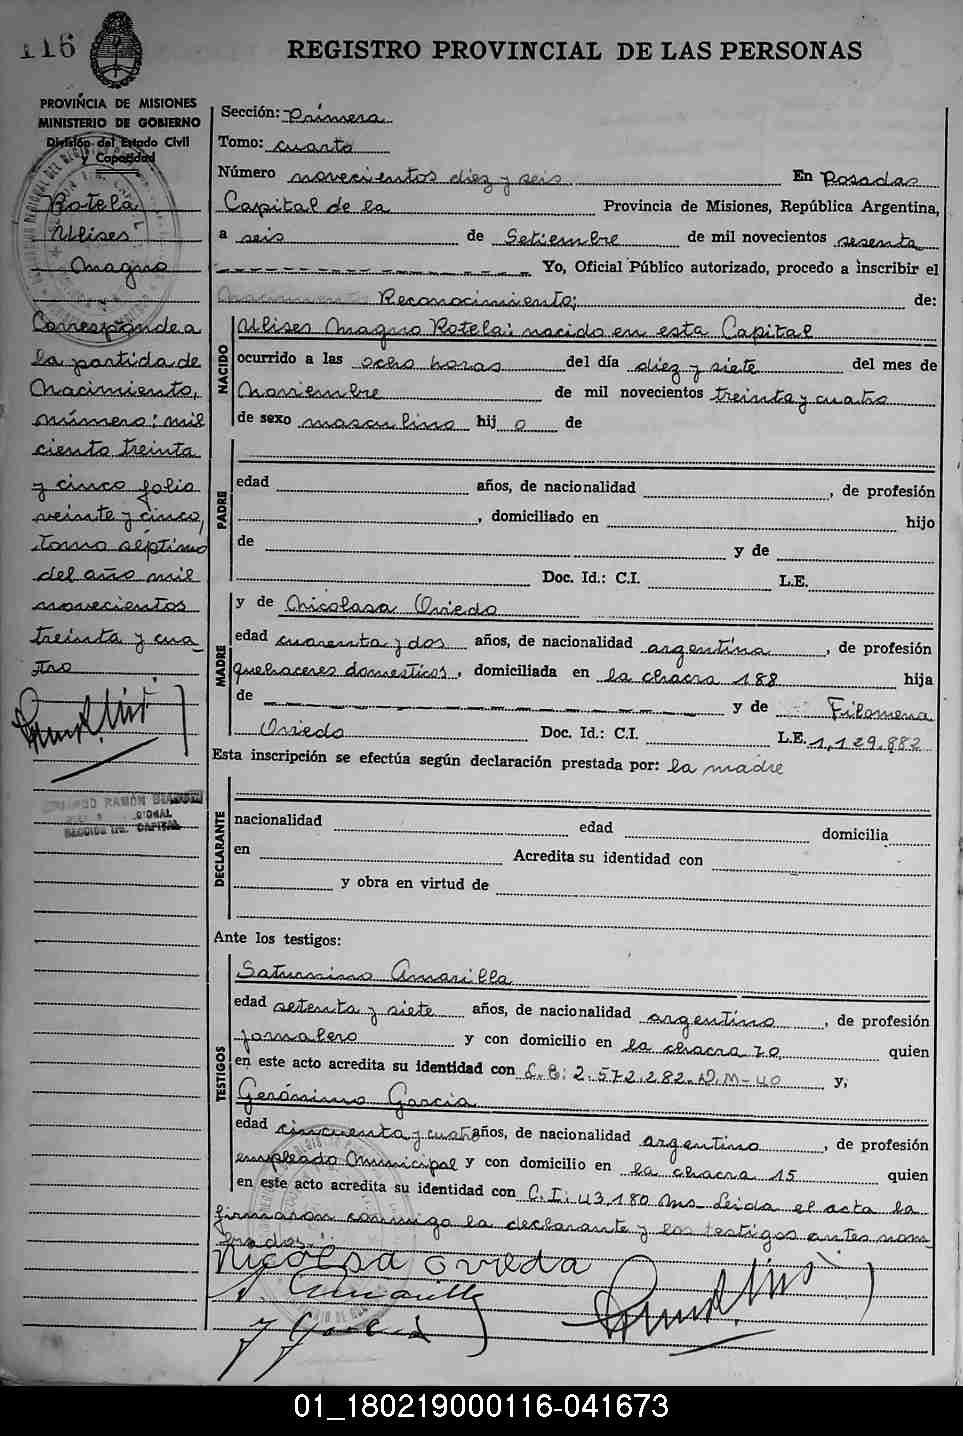 116
REGISTRO PROVINCIAL DE LAS PERSONAS
PROVINCIA DE MISIONES
MINISTERIO DE GOBIERNO
División del Estado Civil
y Capacidad
Rotela
Ulises
Magno
Corresponde a
la partida de
Nacimiento,
número: mil
ciento treinta
y cinco folio
veinte y cinco,
Tomo séptimo
del año mil
novecientos
treinta y cua-
tro
RAMÓN
SECCION 1ra. CAPITAL
Sección: Primera
Tomo: cuarto
Número novecientos diez y seis En Posadas
Capital de la Provincia de Misiones, República Argentina,
a seis de Setiembre de mil novecientos sesenta
Yo, Oficial Público autorizado, procedo a inscribir el
Nacimiento Reconocimiento; de:
NACIDO
Ulises Magno Rotela: nacido en esta Capital
ocurrido a las ocho horas del día diez y siete del mes de
Noviembre de mil novecientos treinta y cuatro
de sexo masculino hij o de
PADRE
edad años, de nacionalidad , de profesión
, domiciliado en hijo
de y de
Doc. Id.: C.I. L.E.
MADRE
y de Nicolasa Oviedo
edad cuarenta y dos años, de nacionalidad argentina , de profesión
quehaceres domesticos , domiciliada en la chacra 188 hija
de y de Filomena
Oviedo Doc. Id.: C.I. L.E. 1.129.882
Esta inscripción se efectúa según declaración prestada por: la madre
DECLARANTE
nacionalidad edad domicilia
en Acredita su identidad con
y obra en virtud de
Ante los testigos:
TESTIGOS
Saturnino Amarilla
edad setenta y siete años, de nacionalidad argentino , de profesión
jornalero y con domicilio en la chacra 70 quien
en este acto acredita su identidad con L.E: 2.572.282. D.M-40 y,
Gerónimo Garcia
edad cincuenta y cuatro años, de nacionalidad argentino , de profesión
empleado Municipal y con domicilio en la chacra 15 quien
en este acto acredita su identidad con C.I: 43.180 Mns. Leida el acta la
firmaron conmigo la declarante y los testigos antes nom-
brados.
Nicolsa oveda
A. Amarilla
J Garcia
01_180219000116-041673